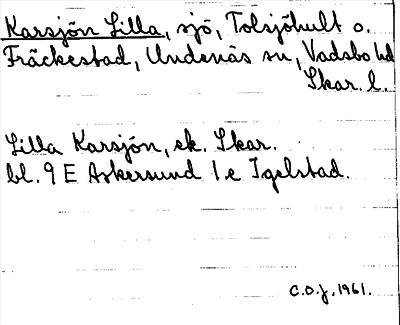 Karsjön Lilla, sjö, Tolsjöhult o.
Fräckestad, Undenäs sn, Vadsbo hd
Skar. l.
Lilla Karsjön, ek. Skar.
bl. 9 E Askersund 1 e Igelstad.
C.O.J. 1961.